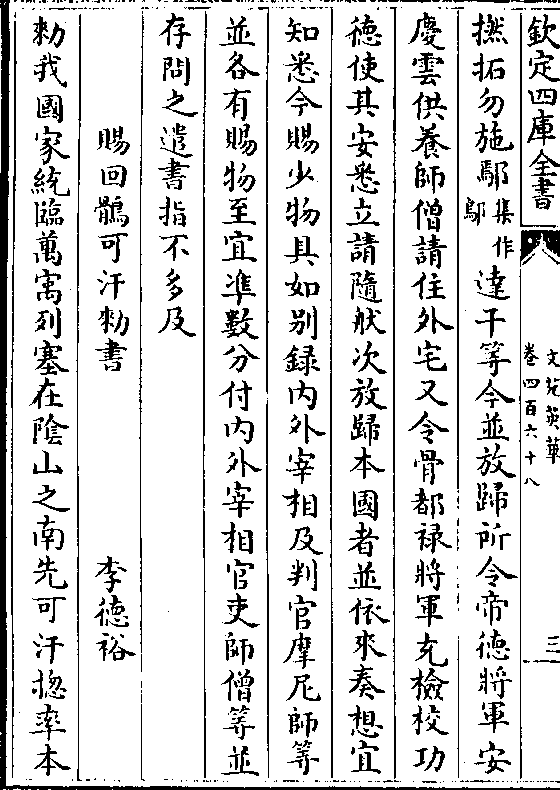 欽定四庫全書
文苑英華
卷四百六十八
三
撫拓勿施鄔集作鄥達干等今並放歸所令帝德將軍安
慶雲供養師僧請住外宅又令骨都禄將軍充檢校功
德使其安悉立請隨般次放歸本國者並依來奏想宜
知悉今賜少物具如别録内外宰相及判官摩尼師等
並各有賜物至宜準數分付内外宰相官吏師僧等並
存問之遣書指不多及
賜回鶻可汗勑書 李德裕
勑我國家統臨萬㝢列塞在隂山之南先可汗揔率本